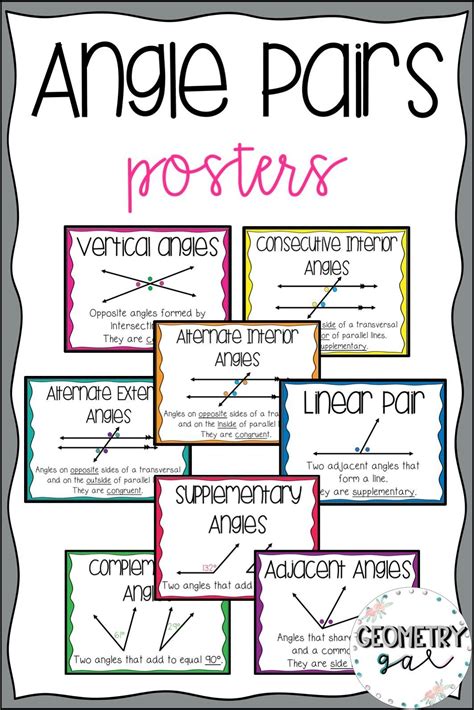 Angle Pairs
posters
Vertical Angles
Opposite angles formed by
intersectin
They are con
Consecutive Interior
Angles
side of a transversal
or of parallel lines.
supplementary.
Alternate Interior
Angles
Angles on opposite sides of a transversal
and on the inside of parallel lines.
They are congruent.
Alternate Exter
Angles
Angles on opposite sides of a transversal
and on the outside of parallel l
They are congruent.
Linear Pair
Two adjacent angles that
form a line.
They are supplementary.
Supplementary
Angles
132°
Two angles that add
Complem
Angles
61°
29°
Two angles that add to equal 90°.
Adjacent Angles
Angles that shar
and a commo
They are side
GEOMETRY
gal